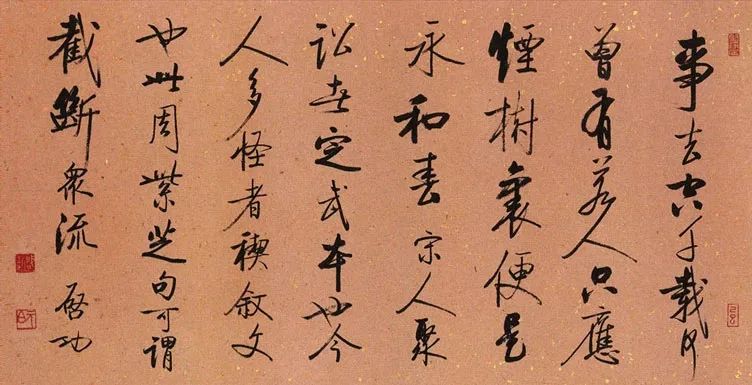 事去空千載何
曾有若人只應
煙樹裏便是
永和春宋人聚
訟者定武本也今
人多怪者禊敘文
也此周紫芝句可謂
截斷眾流 啓功